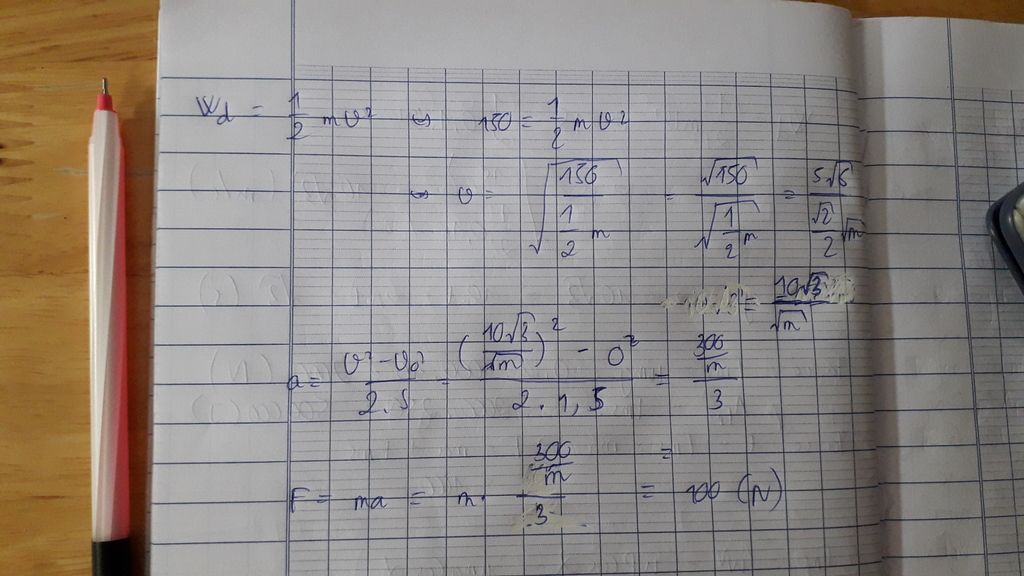 Wđ = 1/2 mv² ⇔ 150 = 1/2 mv²
⇔ v = √(150/(1/2 m)) = √150/√(1/2 m) = 5√6/(√2/2 √m)
= 10√3/√m
a = (v² - v₀²)/(2.S) = ((10√3/√m)² - 0²)/(2.1,5) = (300/m)/3
F = ma = m. (300/m)/3 = = 100 (N)